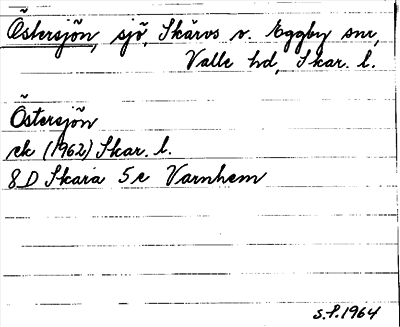 Östersjön, sjö, Skärvs o. Eggby snr,
Valle hd, Skar. l.
Östersjön
ek (1962) Skar. l.
8D Skara 5e Varnhem
S.F. 1964